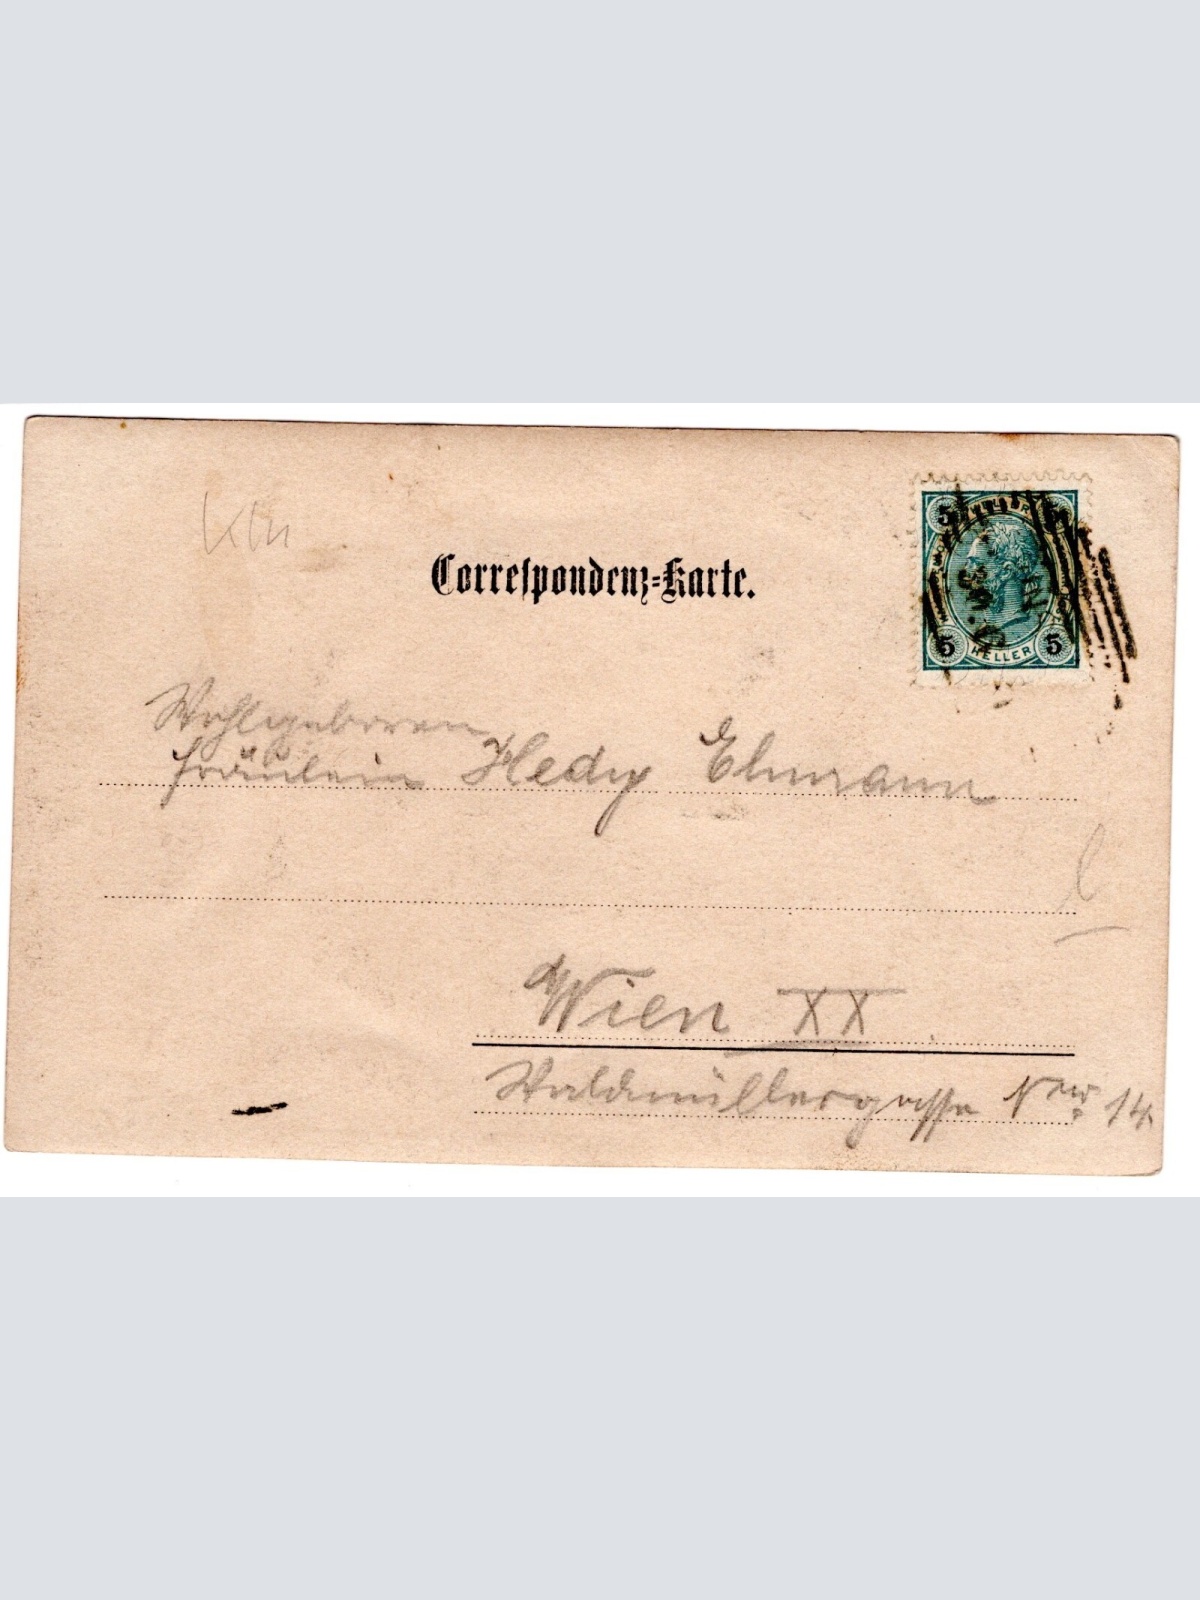 Correspondenz-Karte.
5 5
5 HELLER 5
Wohlgeboren
Fräulein Hedy Ehmann
Wien XX
Waldmüllergasse Nro 14